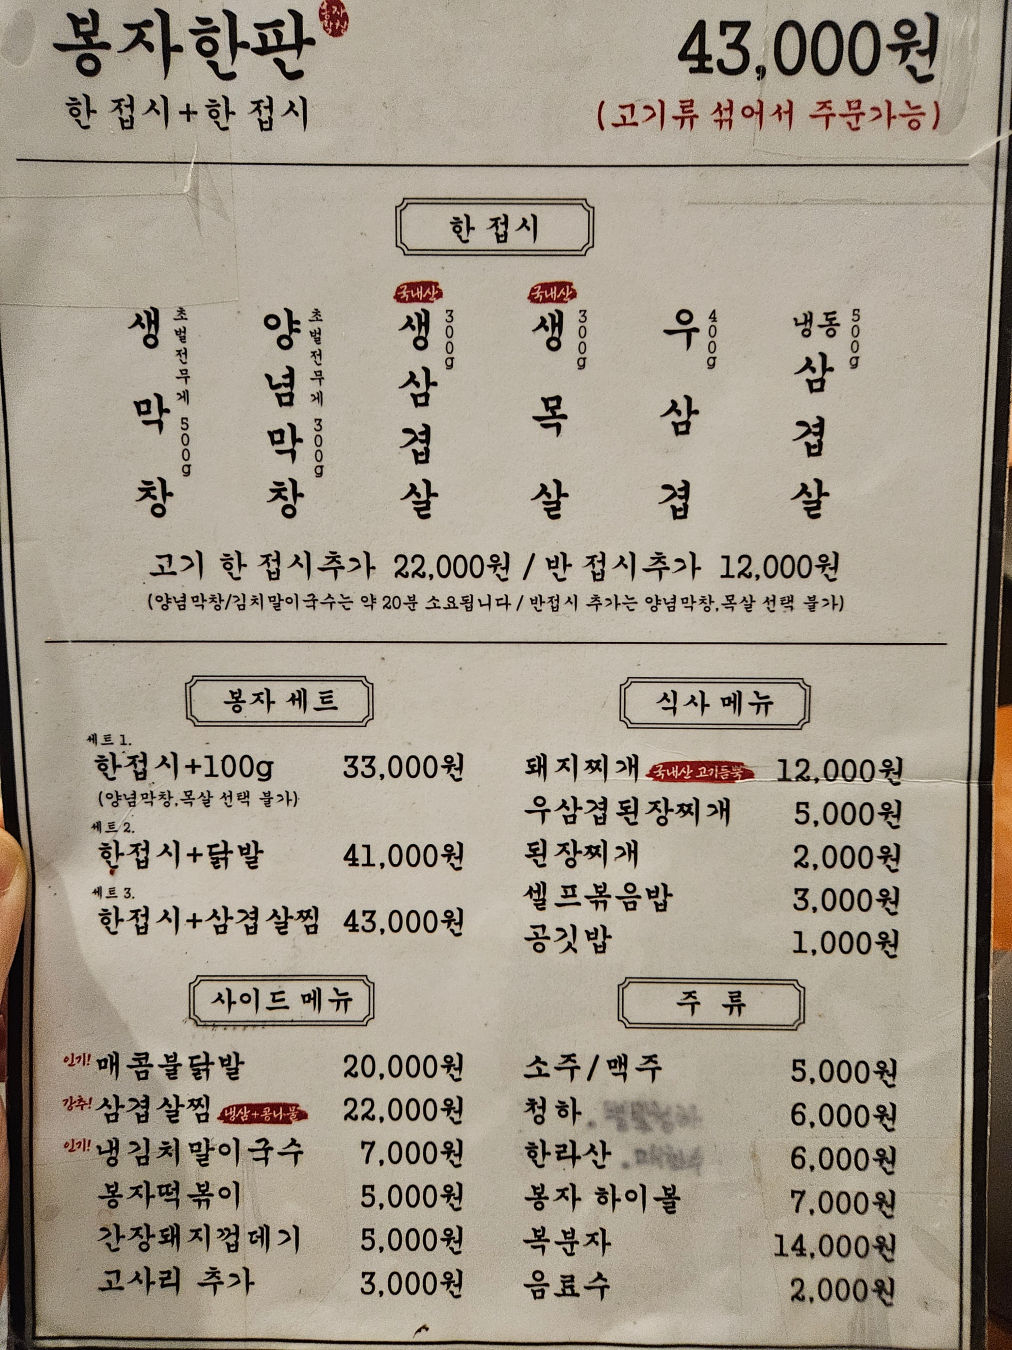 봉자한판 43,000원
봉자막창
한 접시+한 접시 (고기류 섞어서 주문가능)
한 접시
생막창 초벌전무게 500g
양념막창 초벌전무게 300g
국내산 생삼겹살 300g
국내산 생목살 300g
우삼겹 400g
냉동삼겹살 500g
고기 한 접시추가 22,000원 / 반 접시추가 12,000원
(양념막창/김치말이국수는 약 20분 소요됩니다 / 반접시 추가는 양념막창,목살 선택 불가)
봉자 세트
세트 1.
한접시+100g 33,000원
(양념막창,목살 선택 불가)
세트 2.
한접시+닭발 41,000원
세트 3.
한접시+삼겹살찜 43,000원
식사 메뉴
돼지찌개 국내산 고기듬뿍 12,000원
우삼겹된장찌개 5,000원
된장찌개 2,000원
셀프볶음밥 3,000원
공깃밥 1,000원
사이드 메뉴
인기! 매콤불닭발 20,000원
강추! 삼겹살찜 냉삼+콩나물 22,000원
인기! 냉김치말이국수 7,000원
봉자떡볶이 5,000원
간장돼지껍데기 5,000원
고사리 추가 3,000원
주 류
소주/맥주 5,000원
청하. 6,000원
한라산. 6,000원
봉자 하이볼 7,000원
복분자 14,000원
음료수 2,000원